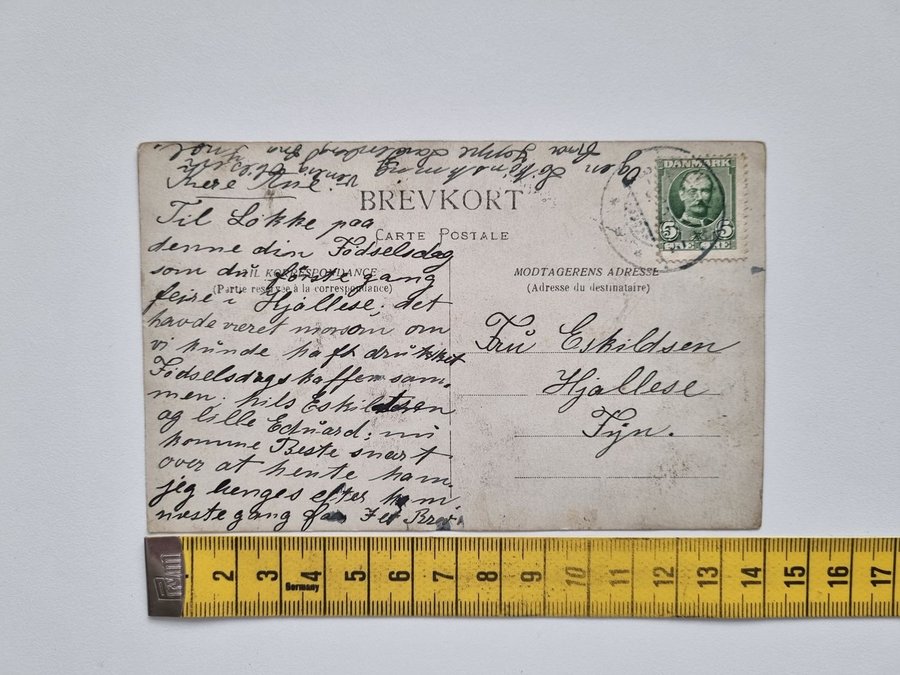 Kære Ane
BREVKORT
CARTE POSTALE
Til Løkke paa
denne din Fødselsdag
som du gang
TIL KORRESPONDANCE
(Partie reservée à la correspondance)
feire i Hjallese; det
havde været morsom om
vi kunde haft drukket
Fødselsdagskaffen sam-
men. hils Eskildsen
og lille Eduard; nu
komme Beste snart
over at hente ham
jeg lenges efter ham
næste gang faar I et Brev
DANMARK
5 5
ØRE
MODTAGERENS ADRESSE
(Adresse du destinataire)
Fru Eskildsen
Hjallese
Fyn.
2 3 4 5 6 7 8 9 10 11 12 13 14 15 16 17
Germany